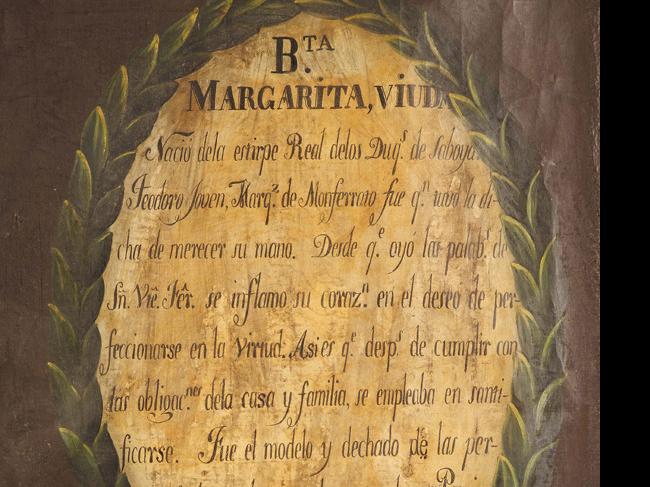 B.TA
MARGARITA, VIUDA
Nació dela estirpe Real delos Duqs. de Saboya.
Teodoro Joven, Marqz. de Monferrato fue qn. tuvo la di-
cha de merecer su mano. Desde qe. oyó las palabs. de
Sn. Vie. Fêr. se inflamo su corazn. en el deseo de per-
feccionarse en la virtud. Asi es qe. desps. de cumplir con
las obligacnes. dela casa y familia, se empleaba en santi-
ficarse. Fue el modelo y dechado de las per-